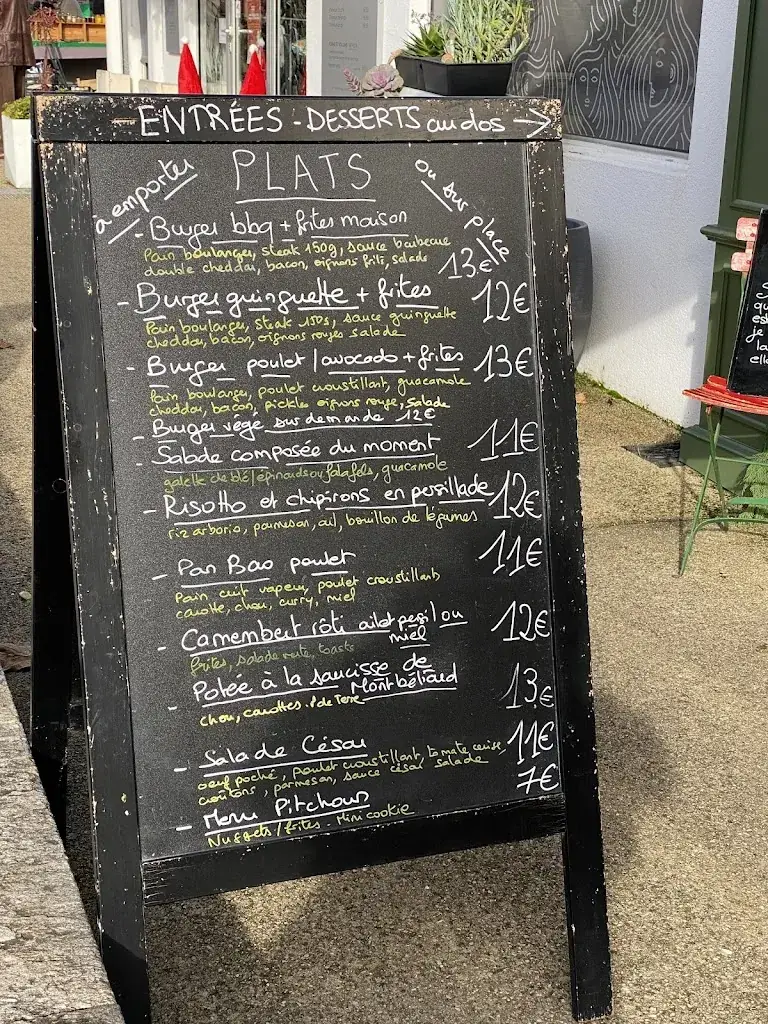 ENTRÉES - DESSERTS au dos →
à emporter
PLATS
ou sur place
- Burger bbq + frites maison
Pain boulanger, steak 150g, sauce barbecue
double cheddar, bacon, oignons frits, salade
13€
- Burger guinguette + frites 12€
Pain boulanger, steak 150g, sauce guinguette
cheddar, bacon, oignons rouges salade
- Burger poulet / avocado + frites 13€
Pain boulanger, poulet croustillant, guacamole
cheddar, bacon, pickles oignons rouge, salade
- Burger végé sur demande 12€
- Salade composée du moment 11€
galette de blé/épinards ou falafels, guacamole
- Risotto et chipirons en persillade 12€
riz arborio, parmesan, ail, bouillon de légumes
- Pan Bao poulet 11€
Pain cuit vapeur, poulet croustillant,
carotte, chou, curry, miel
- Camembert rôti ail et persil ou
miel 12€
frites, salade verte, toasts
- Potée à la saucisse de
Montbéliard 13€
chou, carottes, P. de Terre
- Salade César 11€
oeuf poché, poulet croustillant, tomate cerise,
croûtons, parmesan, sauce césar salade
- Menu Pitchoun 7€
Nuggets / frites - Mini cookie